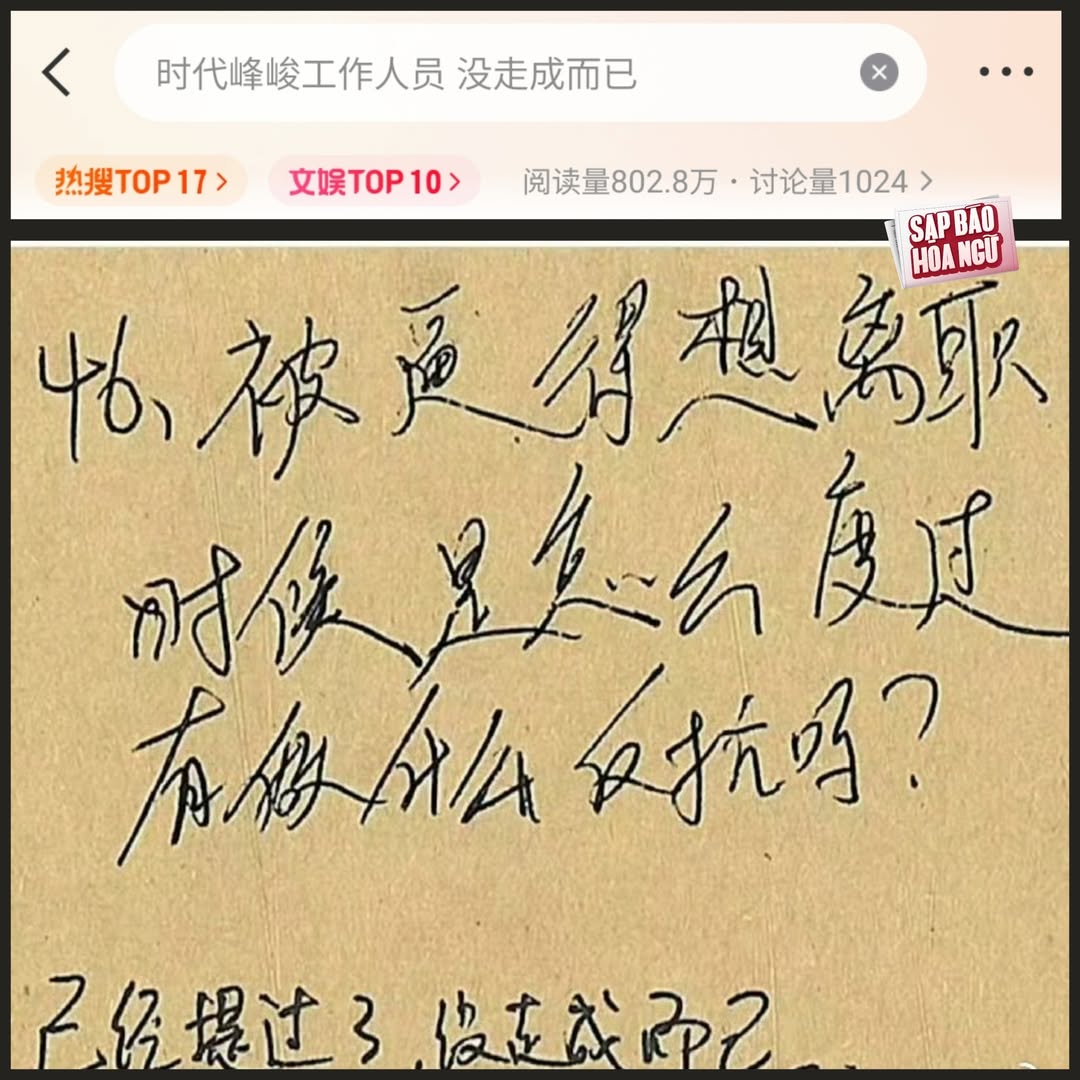 时代峰峻工作人员 没走成而已
热搜TOP 17
文娱TOP 10
阅读量802.8万·讨论量1024
SẠP BÁO
HOA NGỮ
46、被逼得想离职
时候是怎么度过
有做什么反抗吗?
已经提过了,没走成而已...